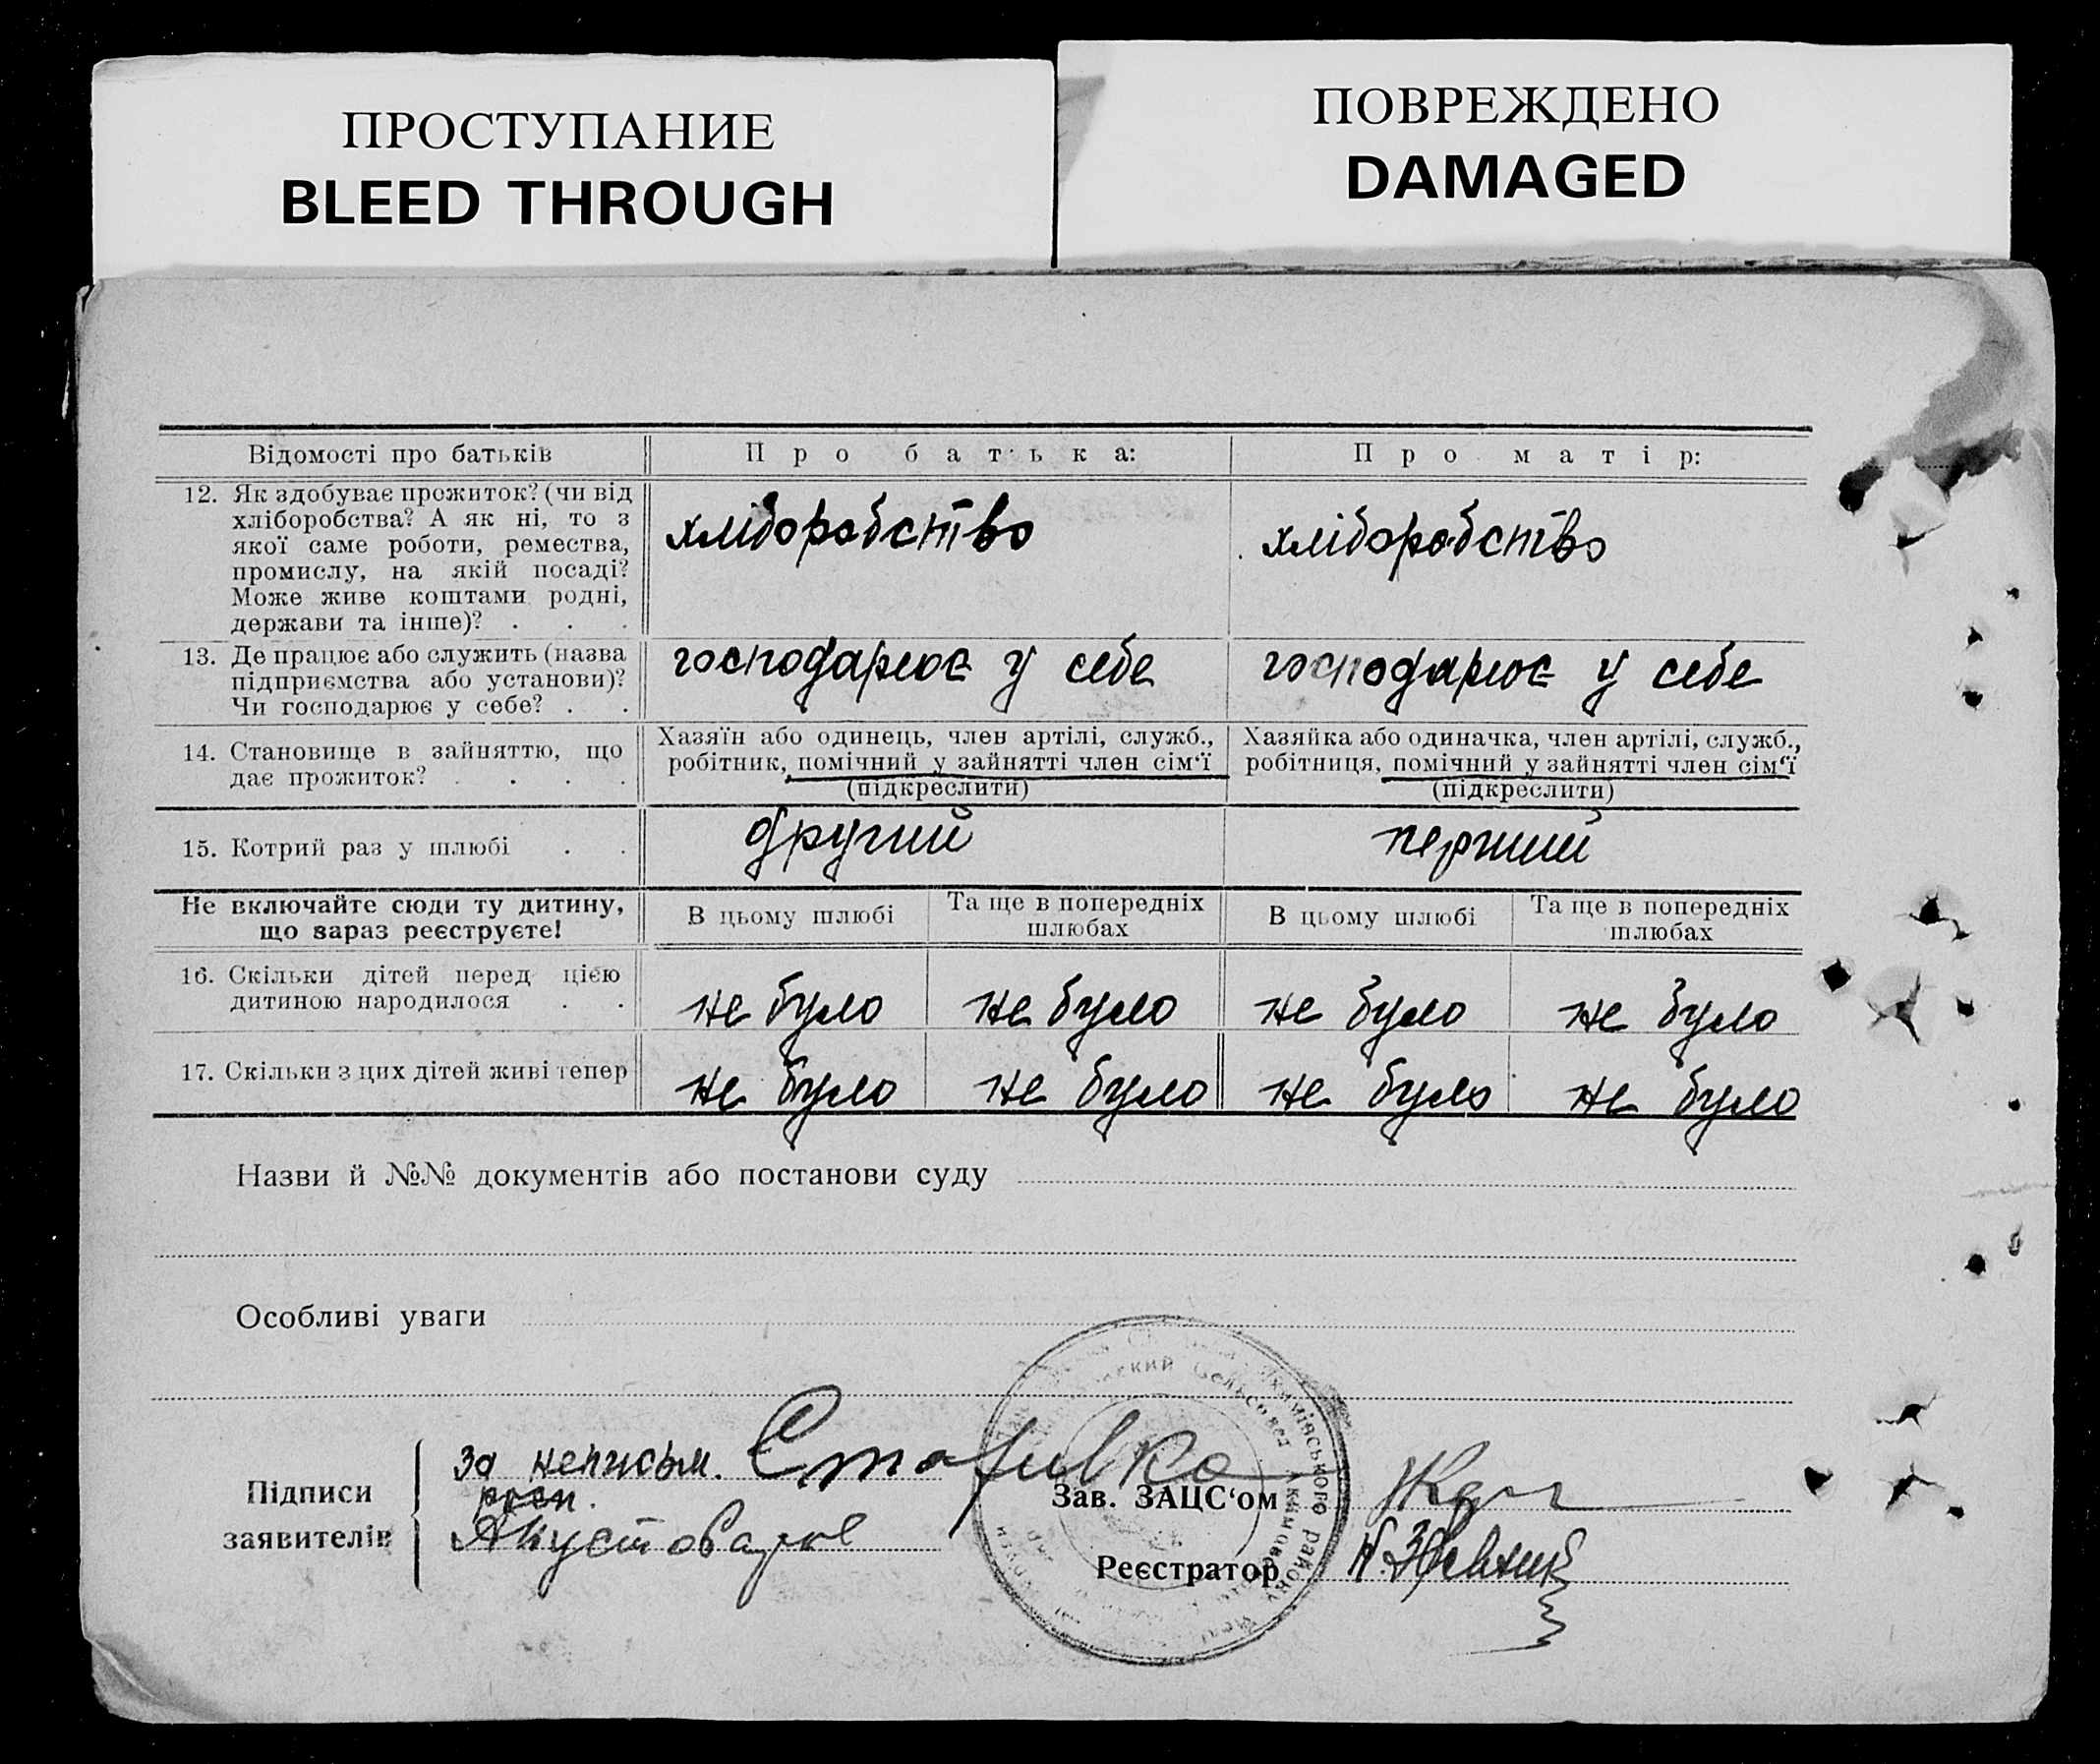 ПРОСТУПАНИЕ
BLEED THROUGH
ПОВРЕЖДЕНО
DAMAGED
Відомості про батьків
Про батька:
Про матір:
12. Як здобуває прожиток? (чи від
хліборобства? А як ні, то з
якої саме роботи, ремества,
промислу, на якій посаді?
Може живе коштами родні,
держави та інше)? . . .
хліборобство
хліборобство
13. Де працює або служить (назва
підприємства або установи)?
Чи господарює у себе? . .
господарює у себе
господарює у себе
14. Становище в зайняттю, що
дає прожиток? . . . .
Хазяїн або одинець, член артілі, служб.,
робітник, помічний у зайнятті член сім‘ї
(підкреслити)
Хазяйка або одиначка, член артілі, служб.,
робітниця, помічний у зайнятті член сім‘ї
(підкреслити)
15. Котрий раз у шлюбі . .
другий
перший
Не включайте сюди ту дитину,
що зараз реєструєте!
В цьому шлюбі
Та ще в попередніх
шлюбах
В цьому шлюбі
Та ще в попередніх
шлюбах
16. Скільки дітей перед цією
дитиною народилося . .
не було
не було
не було
не було
17. Скільки з цих дітей живі тепер
не було
не було
не було
не було
Назви й №№ документів або постанови суду
Особливі уваги
Підписи
заявителів
за неписьм.
Зав. ЗАЦС‘ом
Реєстратор
Сельсовет
району